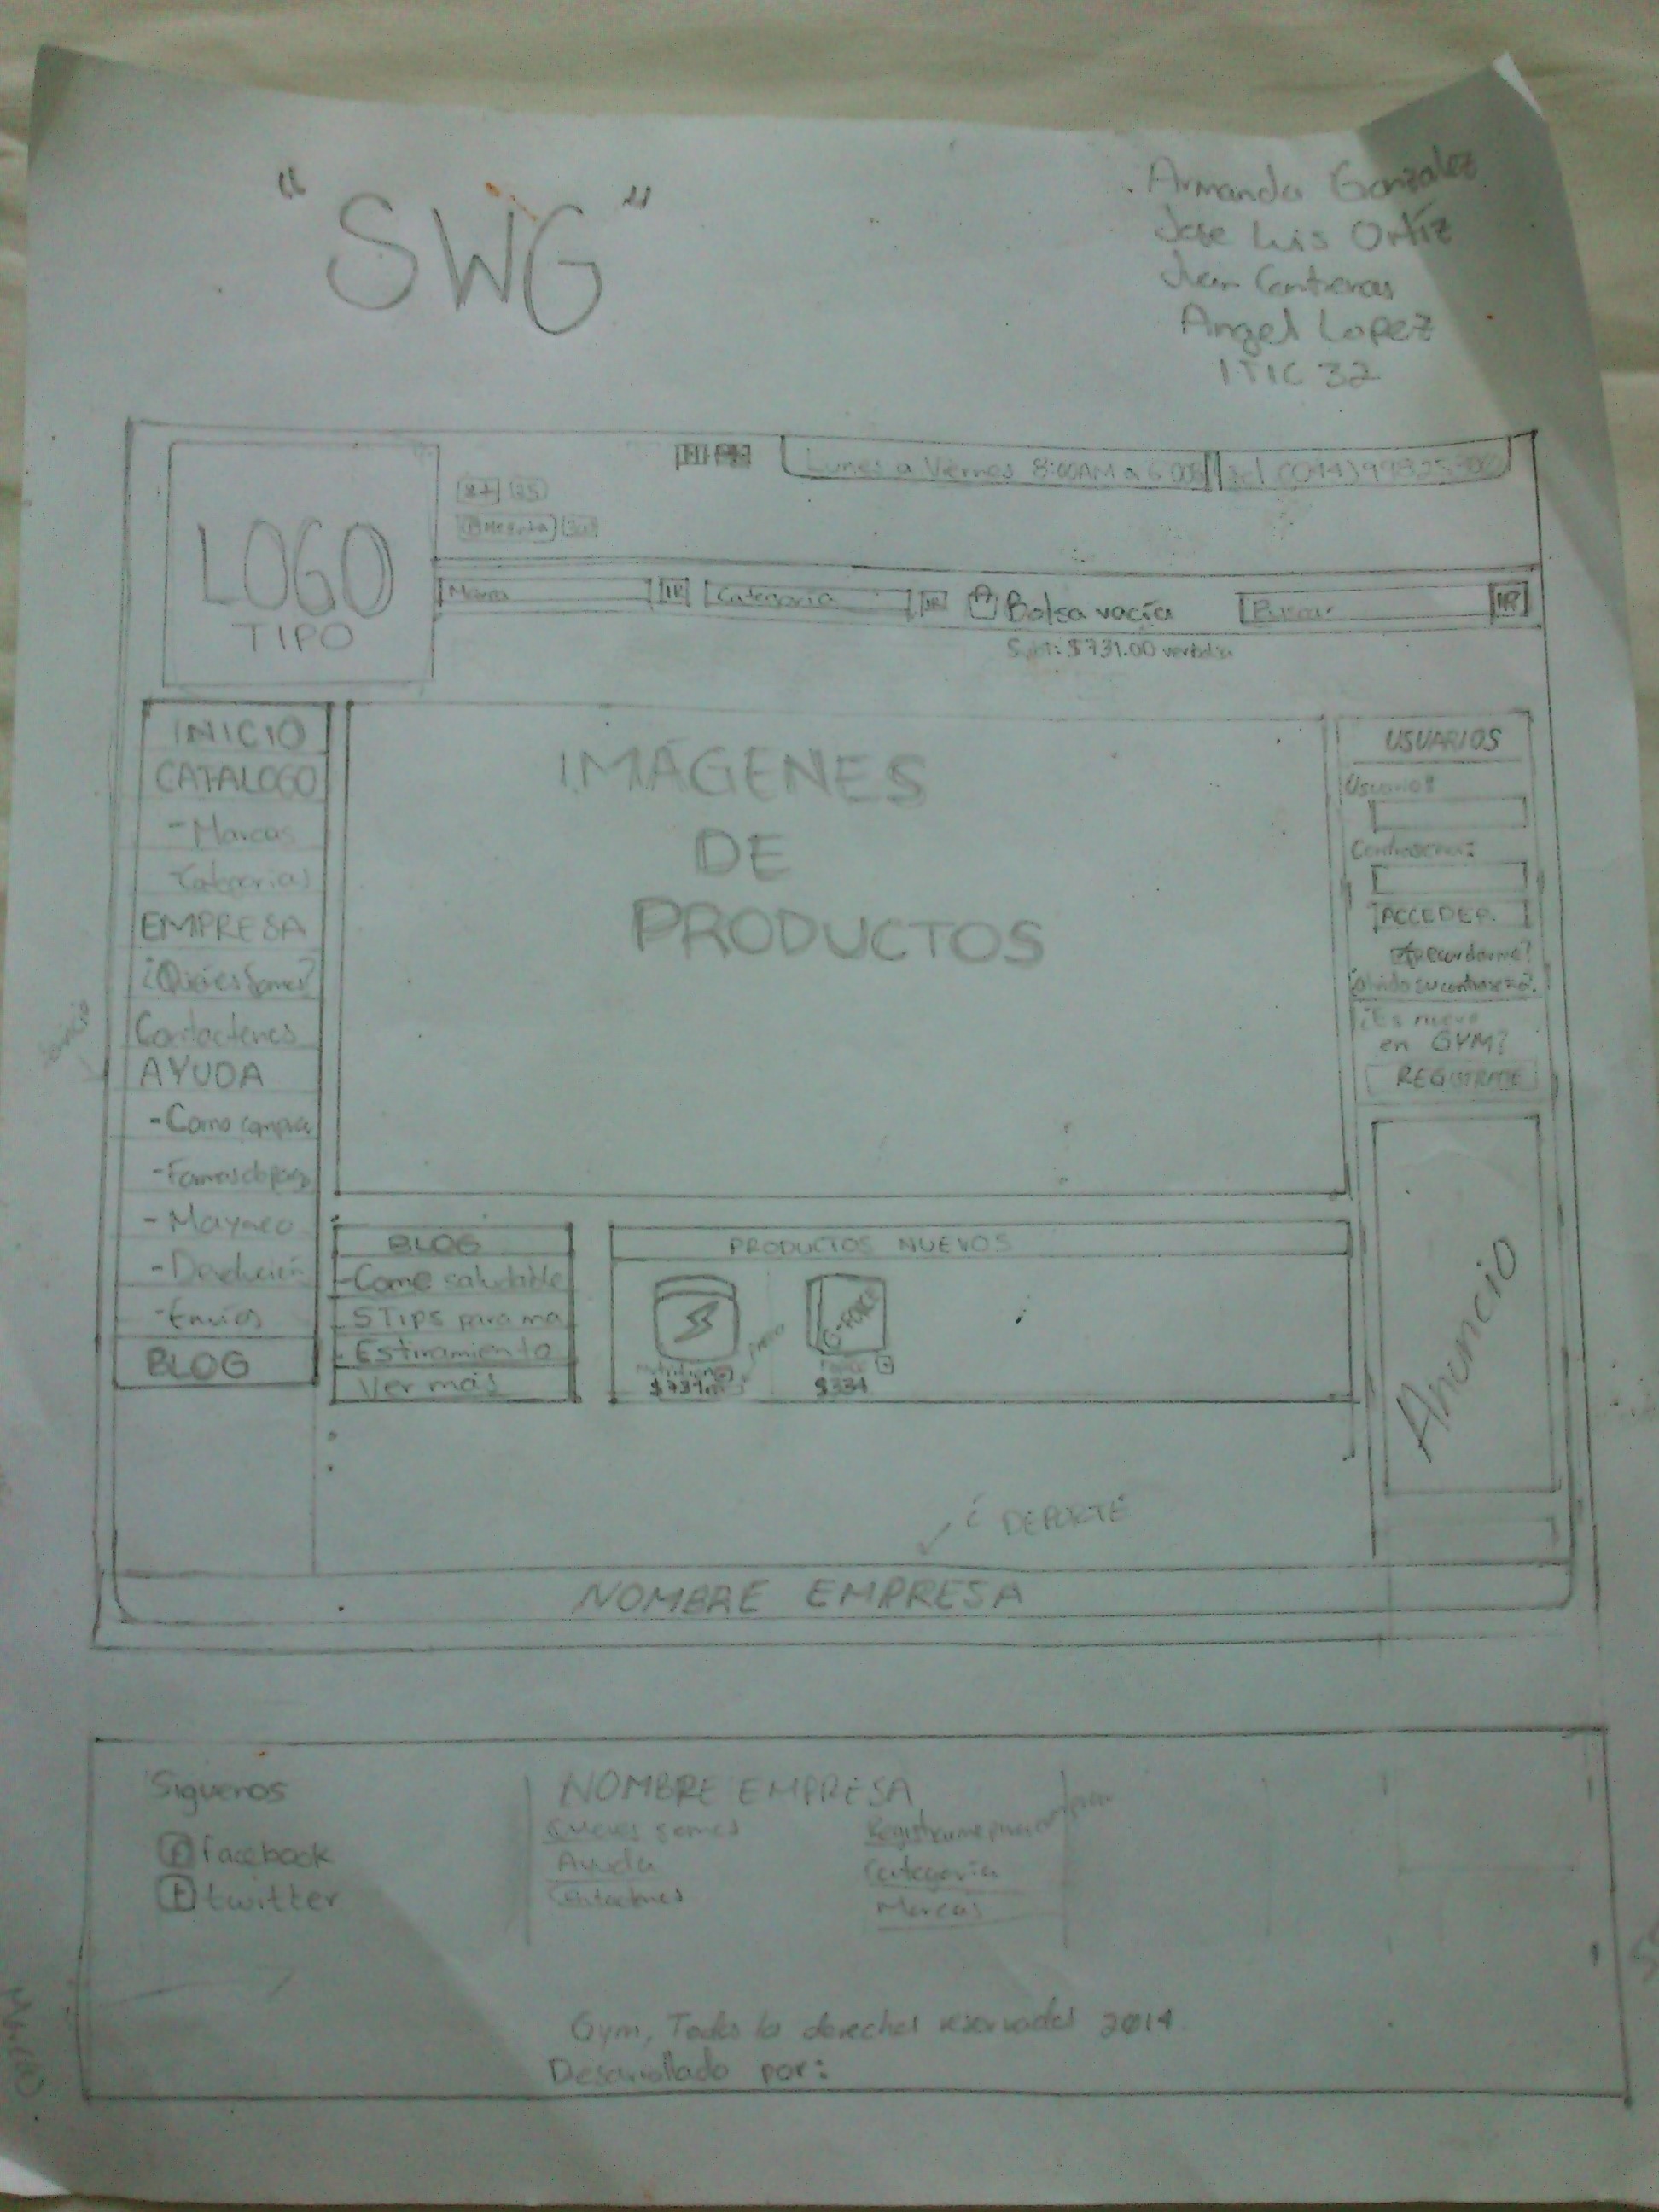 "SWG"
Armando Gonzalez
Jose Luis Ortiz
Juan Contreras
Angel Lopez
ITIC 32
Lunes a Viernes 8:00AM a 6:00
LOGO
TIPO
Marca IR Categoría IR Bolsa vacía Buscar IR
$731.00
INICIO
CATALOGO
- Marcas
- Categorias
EMPRESA
¿Quienes Somos?
Contactenos
AYUDA
- Como comprar
- Mayoreo
- Devolución
- Envíos
BLOG
IMÁGENES
DE
PRODUCTOS
USUARIOS
Usuario:
Contraseña:
ACCEDER
Recordarme?
Olvido su contraseña?
¿Es nuevo
en GYM?
REGISTRATE
Anuncio
BLOG
- Come saludable
5 Tips para ma
- Estiramiento
Ver más
PRODUCTOS NUEVOS
G-FORCE
$334
DEPORTE
NOMBRE EMPRESA
Siguenos
f facebook
t twitter
NOMBRE EMPRESA
Quienes somos
Ayuda
Contactenos
Registrarme para comprar
Categoria
Marcas
Gym, Todos los derechos reservados 2014
Desarrollado por: